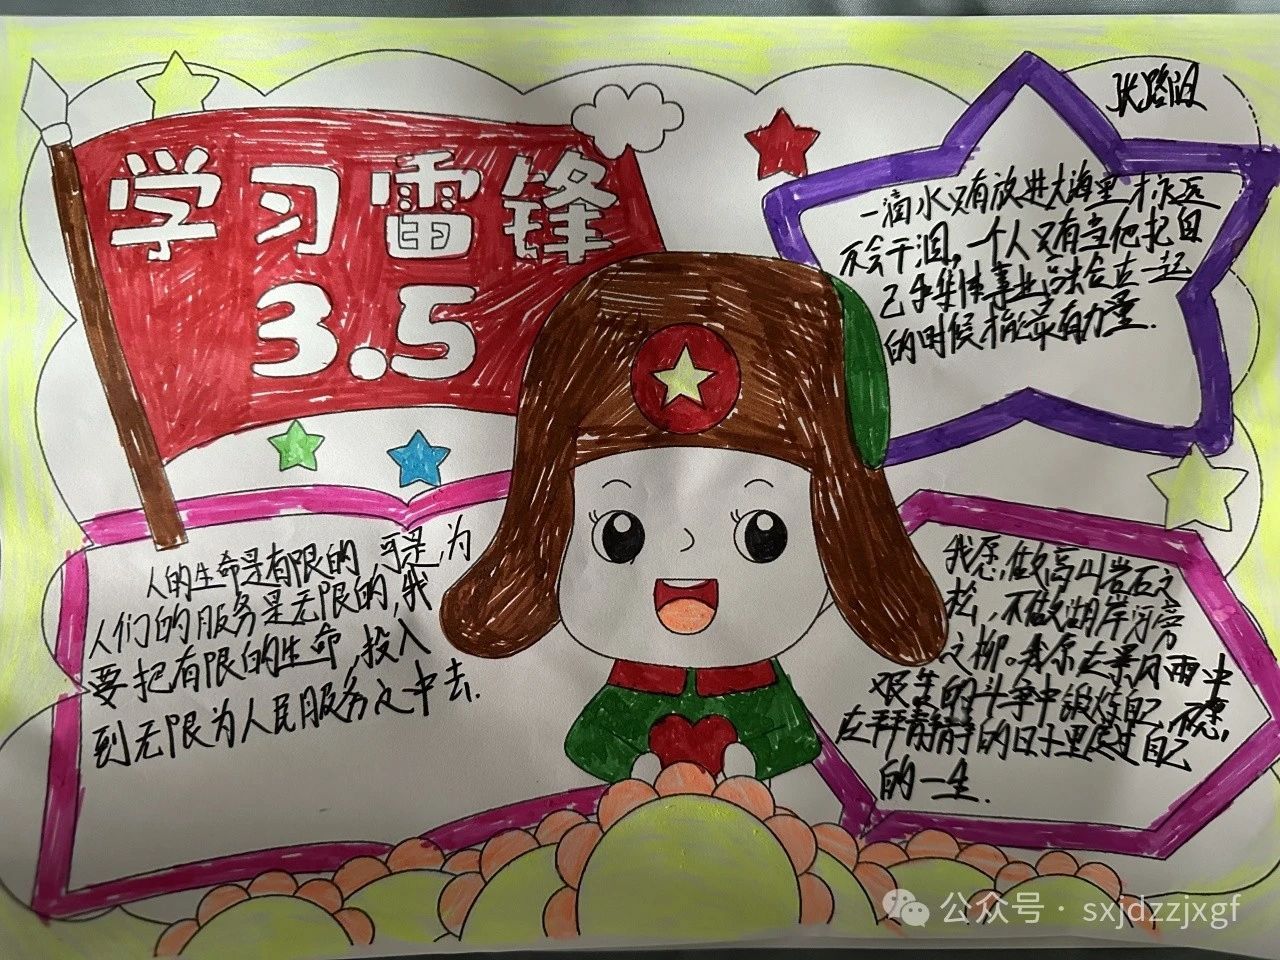 学习雷锋
3.5
一滴水只有放进大海里才永远
不会干涸，一个人只有当他把自
己和集体事业融合在一起
的时候才能最有力量.
人的生命是有限的 可是,为
人们的服务是无限的,我
要把有限的生命,投入
到无限为人民服务之中去.
我愿做高山岩石之
松，不做湖岸河旁
之柳。我愿在暴风雨中
艰坚的斗争中锻炼自己,不愿,
在平平静静的日子里度过自己
的一生.
公众号· sxjdzzjxgf